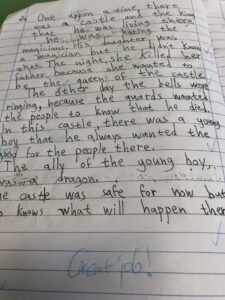 One appon a time there
was a castle and the king
that he was living there
he was hating the
magicians. His daughter was
a magician but he didn't know
that. The night she killed her
father because she wanted to
be the queen of the castle.
The other day the bells were
ringing, because the guards wanted
the people to know that he died.
In this castle there was a young
boy that he always wanted the
good for the people there.
The ally of the young boy,
was a dragon.
castle was safe for now but
knows what will happen then
Great job!